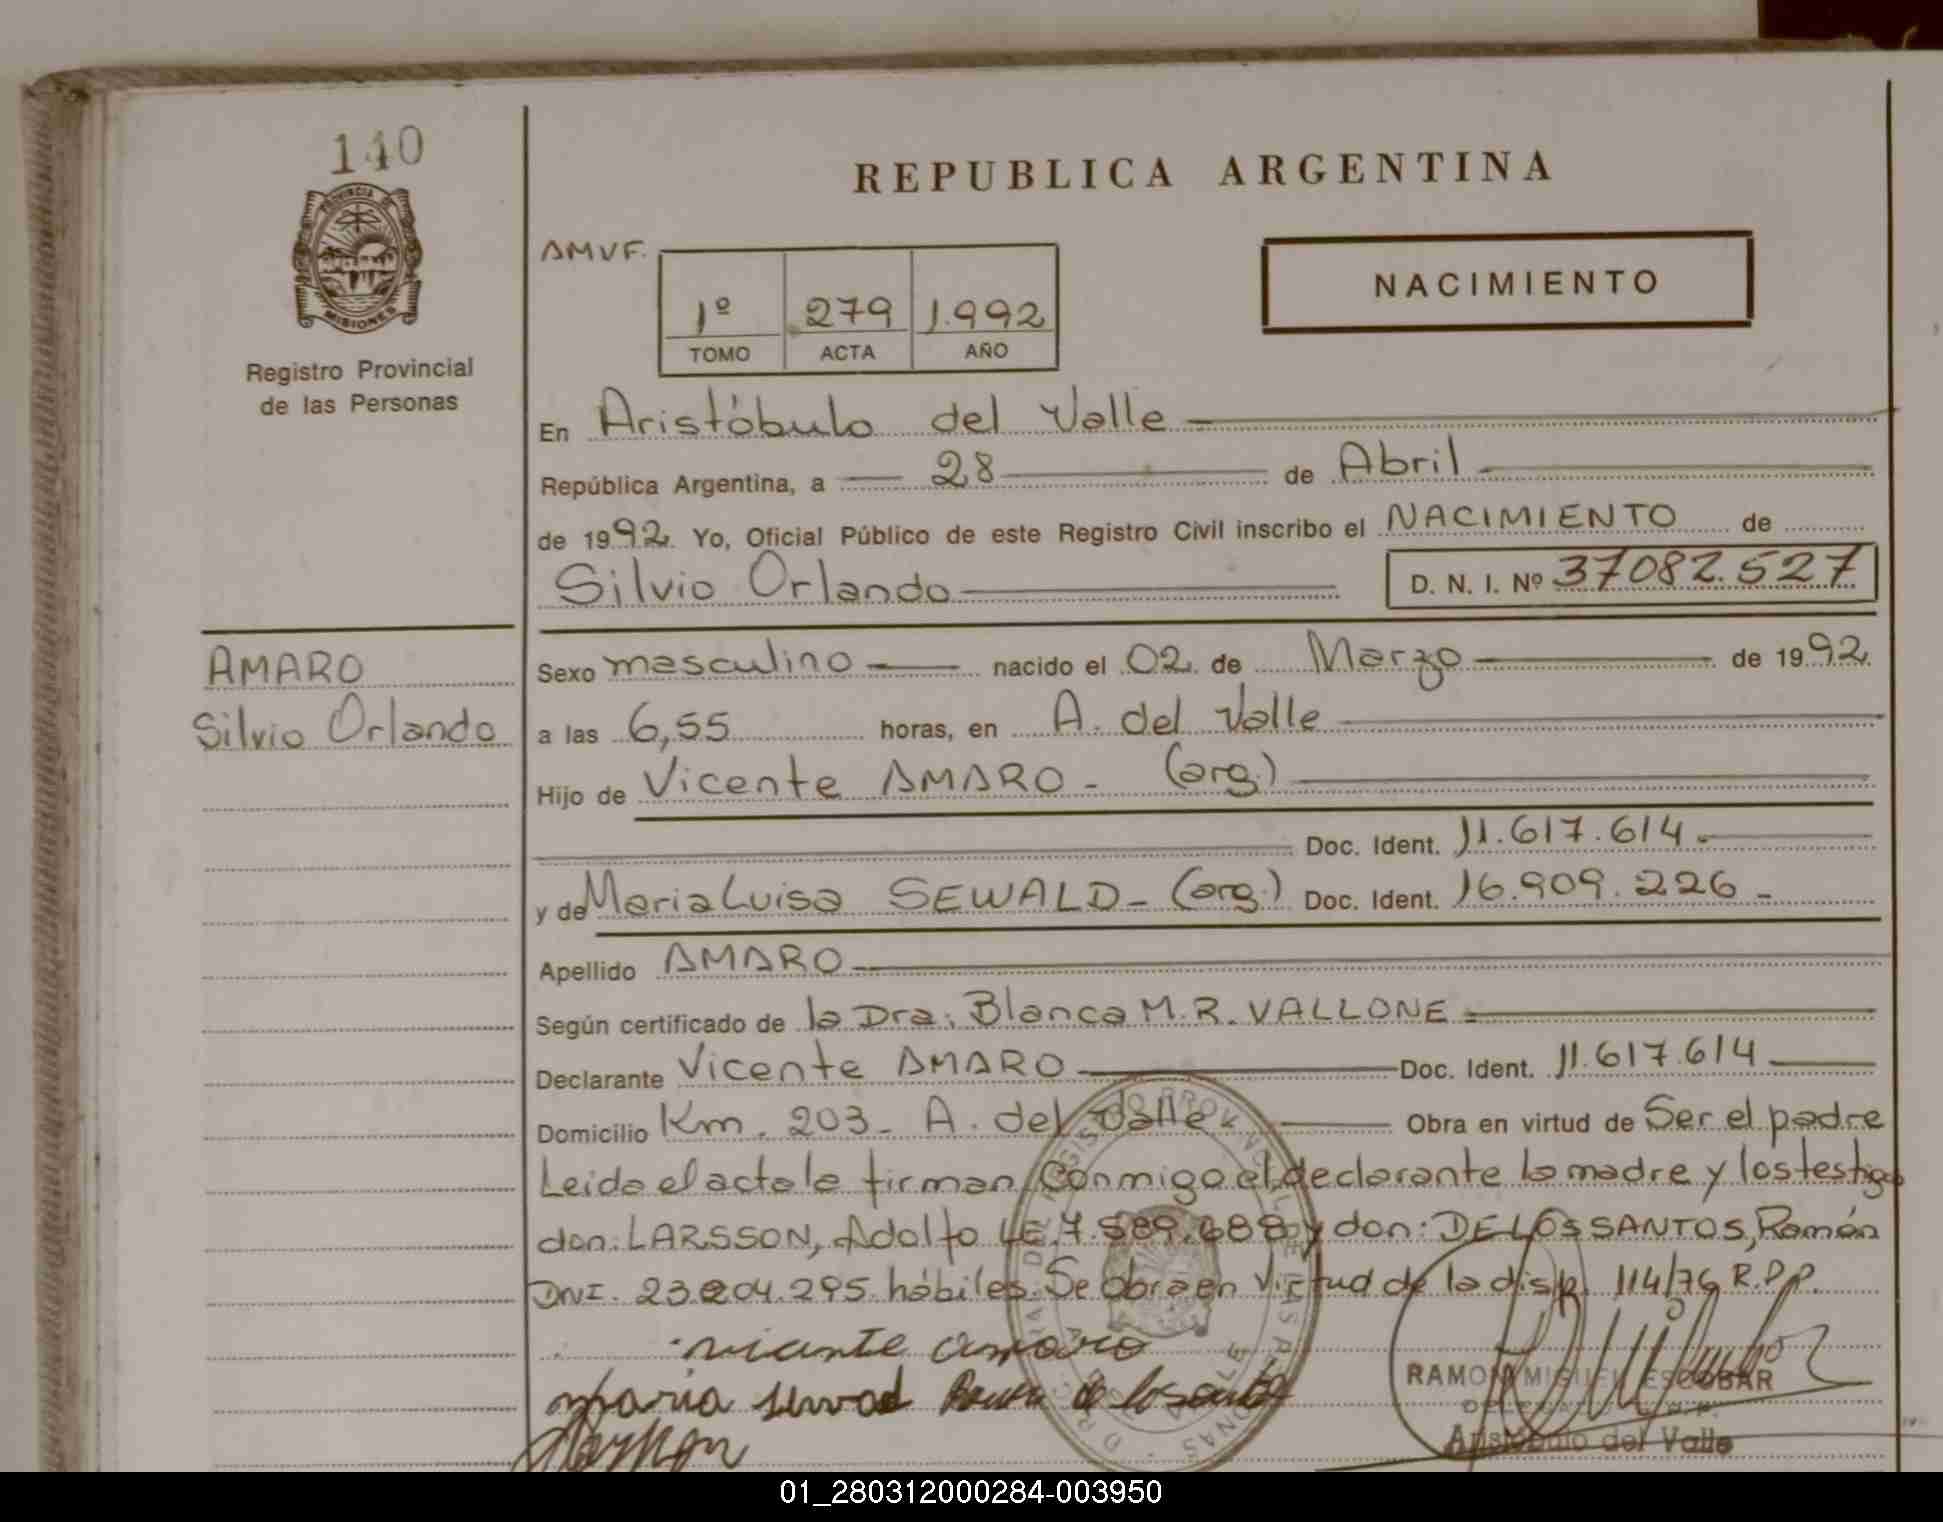 140
PROVINCIA DE
MISIONES
Registro Provincial
de las Personas
REPUBLICA ARGENTINA
AMVF.
1º 279 1.992
TOMO ACTA AÑO
NACIMIENTO
En Aristóbulo del Valle
República Argentina, a 28 de Abril
de 1992. Yo, Oficial Público de este Registro Civil inscribo el NACIMIENTO de
Silvio Orlando D. N. I. Nº 37082.527
AMARO
Silvio Orlando
Sexo masculino nacido el 02 de Marzo de 1992.
a las 6,55 horas, en A. del Valle
Hijo de Vicente AMARO - (arg.)
Doc. Ident. 11.617.614.
y de Maria Luisa SEWALD - (arg.) Doc. Ident. 16.909.226 -
Apellido AMARO
Según certificado de la Dra. Blanca M. R. VALLONE
Declarante Vicente AMARO Doc. Ident. 11.617.614
Domicilio Km. 203 - A. del Valle Obra en virtud de Ser el padre
Leida el acta la firman conmigo el declarante la madre y los testigos
don: LARSSON, Adolfo LE. 7.589.688 y don: DE LOS SANTOS, Ramón
DNI. 23.204.295 hábiles. Se obra en virtud de la disp. 114/76 R.P.P.
viante amaro
maria sewad
RAMON MIGUEL ESCOBAR
Aristóbulo del Valle
01_280312000284-003950